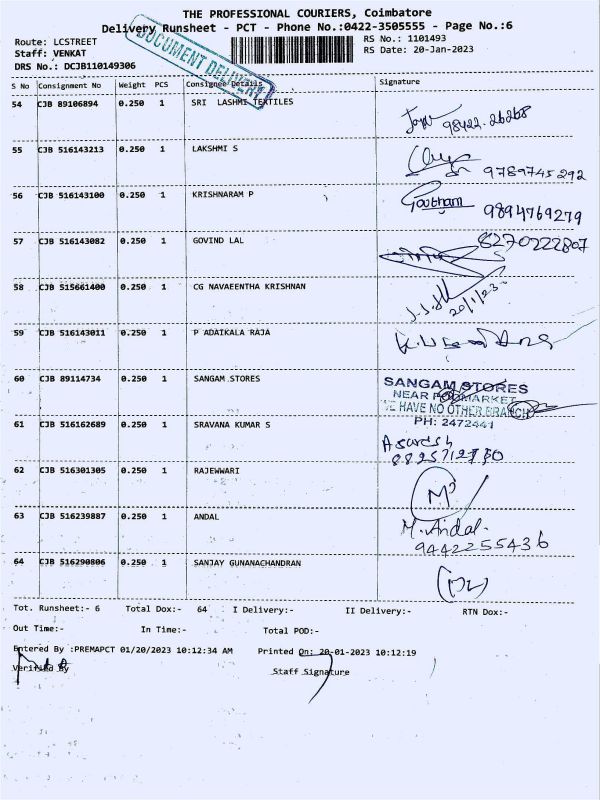 THE PROFESSIONAL COURIERS, Coimbatore
Delivery Runsheet - PCT - Phone No.:0422-3505555 - Page No.:6
Route: LCSTREET
RS No.: 1101493
Staff: VENKAT
RS Date: 20-Jan-2023
DRS No.: DCJB110149306
DOCUMENT DELIVERY
S No Consignment No Weight PCS Consignee Details Signature
54 CJB 89106894 0.250 1 SRI LASHMI TEXTILES
98422-26268
55 CJB 516143213 0.250 1 LAKSHMI S
9789745292
56 CJB 516143100 0.250 1 KRISHNARAM P Goutham
9894769279
57 CJB 516143082 0.250 1 GOVIND LAL 8270222807
58 CJB 515661400 0.250 1 CG NAVAEENTHA KRISHNAN
20/1/23
59 CJB 516143011 0.250 1 P ADAIKALA RAJA
60 CJB 89114734 0.250 1 SANGAM STORES
SANGAM STORES
NEAR POOMARKET
WE HAVE NO OTHER BRANCH
PH: 2472441
61 CJB 516162689 0.250 1 SRAVANA KUMAR S
A suresh
62 CJB 516301305 0.250 1 RAJEWWARI
63 CJB 516239887 0.250 1 ANDAL M. Andal.
9442255436
64 CJB 516290806 0.250 1 SANJAY GUNANACHANDRAN
Tot. Runsheet:- 6 Total Dox:- 64 I Delivery:- II Delivery:- RTN Dox:-
Out Time:- In Time:- Total POD:-
Entered By :PREMAPCT 01/20/2023 10:12:34 AM Printed On: 20-01-2023 10:12:19
Verified By Staff Signature